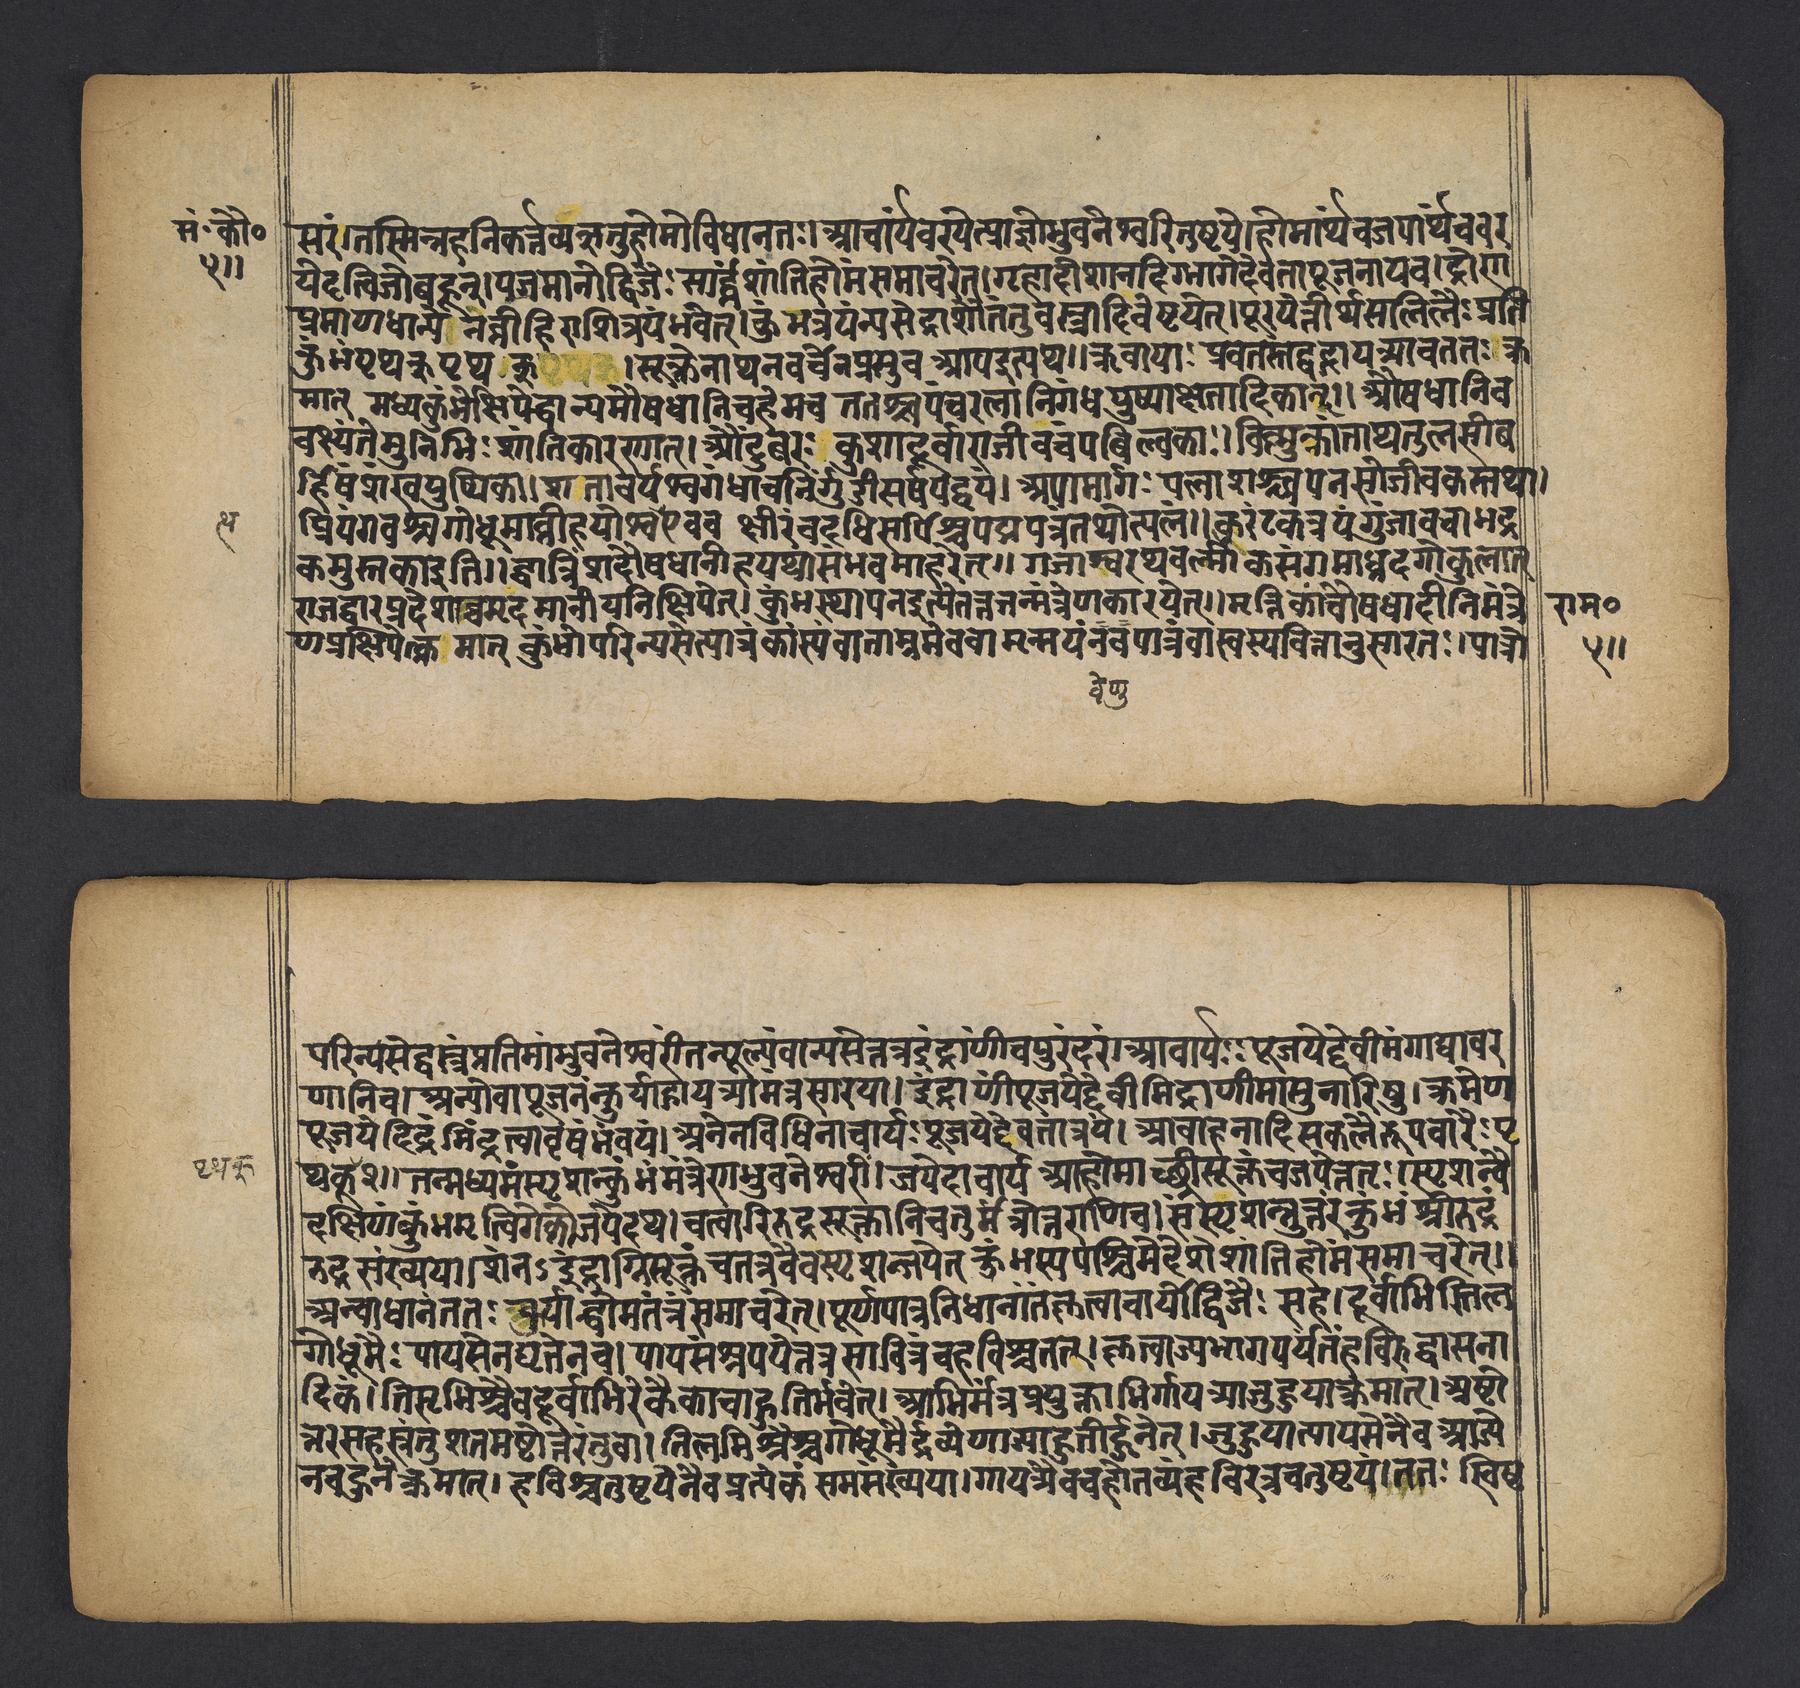 सं॰कौ॰
५॥
सरं।तस्मिन्नहनिकर्त्तव्यऋतुहोमोविधानतः।आचार्यंवरयेत्प्राज्ञोभुवनेश्वरितुष्टये।होमार्थंचजपार्थंचवर
येदृत्विजोबहून्।यजमानोद्विजैःसार्द्धंशांतिहोमंसमाचरेत्।गृहादीशानदिग्भागेदेवतापूजनायच।द्रोण
प्रमाणधान्येनव्रीहिराशित्रयंभवेत्।कुंभत्रयंन्यसेद्राशौतंतुवस्त्रादिवेष्टयेत्।पूरयेत्तीर्थसलिलैःप्रति
कुंभंपृथक्पृथक्।सूक्तेनाथनवर्चेनप्रसुवआपइत्यथ॥ऋचायाःप्रवतस्तद्वद्गायत्र्याचततःक्र
मात् मध्यकुंभेक्षिपेद्धान्यमौषधानिचहेमच ततश्चपंचरत्नानिगंधपुष्पाक्षतादिकान्॥औषधानिच
वक्ष्यंतेमुनिभिःशांतिकारणात्।औदुंबरःकुशादूर्वाराजीवचंपबिल्वकाः।विष्णुक्रांताथतुलसीब
र्हिषंशंखपुष्पिका।शतावर्यश्वगंधाचनिर्गुंडीसर्षपद्वयं।अपामार्गःपलाशश्चपनसोजीवकस्तथा।
प्रियंगवश्चगोधूमाव्रीहयोश्वत्थएवच क्षीरंचदधिसर्पिश्चपद्मपत्रंतथोत्पलं॥कुरंटकत्रयंगुंजावचाभद्र
कमुस्तकाइति॥द्वात्रिंशदौषधानीहयथासंभवमाहरेत्॥गजाश्वरथ्यवल्मीकसंगमाध्रदगोकुलात्
राजद्वारप्रदेशाच्चमृदमानीयनिक्षिपेत्।कुंभस्थापनइत्येतत्तत्तन्मंत्रेणकारयेत्॥मृत्तिकांचौषधादीनिमंत्रे
णप्रक्षिपेत्क्रमात् कुंभोपरिन्यसेत्पात्रंकांस्यंवाताम्रमेववा मृन्मयंनवपात्रंवास्वस्यवित्तानुसारतः।पात्रो
राम॰
५॥
वेणु
परिन्यसेद्वस्त्रंप्रतिमांभुवनेश्वरींतन्मूल्यंवान्यसेत्तत्रइंद्राणींचपुरंदरं।आचार्यःपूजयेद्देवींमंगाद्यावर
णानिच।अन्योवापूजनंकुर्याद्गायत्र्योमंत्रसारया।इंद्राणींपूजयेद्देवीमिंद्राणीमासुनारिषु।क्रमेण
पूजयेदिंद्रंमिंद्रत्वावृषभंवयं।अनेनविधिनाचार्यःपूजयेद्देवतात्रयं।आवाहनादिसकलैरुपचारैःपृ
थक्२॥तन्मध्यमंस्पृशन्कुंभंमंत्रेणभुवनेश्वरीं।जपेदाचार्य आहोमाच्छ्रीसूक्तंचजपेत्ततः।स्पृशन्वै
दक्षिणंकुंभमृत्विगेकोजपेदथ।चत्वारिरुद्रसूक्तानिचतुर्मंत्रोत्तराणिच।संस्पृशन्नुत्तरंकुंभंश्रीरुद्रं
रुद्रसंख्यया।शंनऽइंद्राग्निसूक्तंचतत्रवैवस्पृशन्जपेत् कुंभस्यपश्चिमेदेशेशांतिहोमंसमाचरेत्॥
अन्वाधानंततःकुर्याद्धोमतंत्रंसमाचरेत्।पूर्णपात्रनिधानांतंकृत्वाचार्योद्विजैःसह।दूर्वाभिस्तिल
गोधूमैःपायसेनघृतेनच।पायसंश्रपयेत्तत्रसावित्रंचहविश्चतत्।कृत्वाज्यभागपर्यंतंहविरुद्वासना
दिकं।तिसृभिश्चैवदूर्वाभिरेकैकाचाहुतिर्भवेत्।आभिर्मंत्रप्रयुक्ताभिर्गायत्र्याजुहुयात्क्रमात्।अष्टो
त्तरसहस्रंतुशतमष्टोत्तरंतुवा।तिलमिश्रैश्चगोधूमैर्द्रव्येणाज्याहुतीर्हुनेत्।जुहुयात्पायसेनैवआज्ये
नचहुनेत्क्रमात्।हविश्चतुष्टयेनैवप्रत्येकंसमसंख्यया।गायत्र्यैवचहोतव्यंहविरत्रचतुष्टयं।ततःस्विष्ट